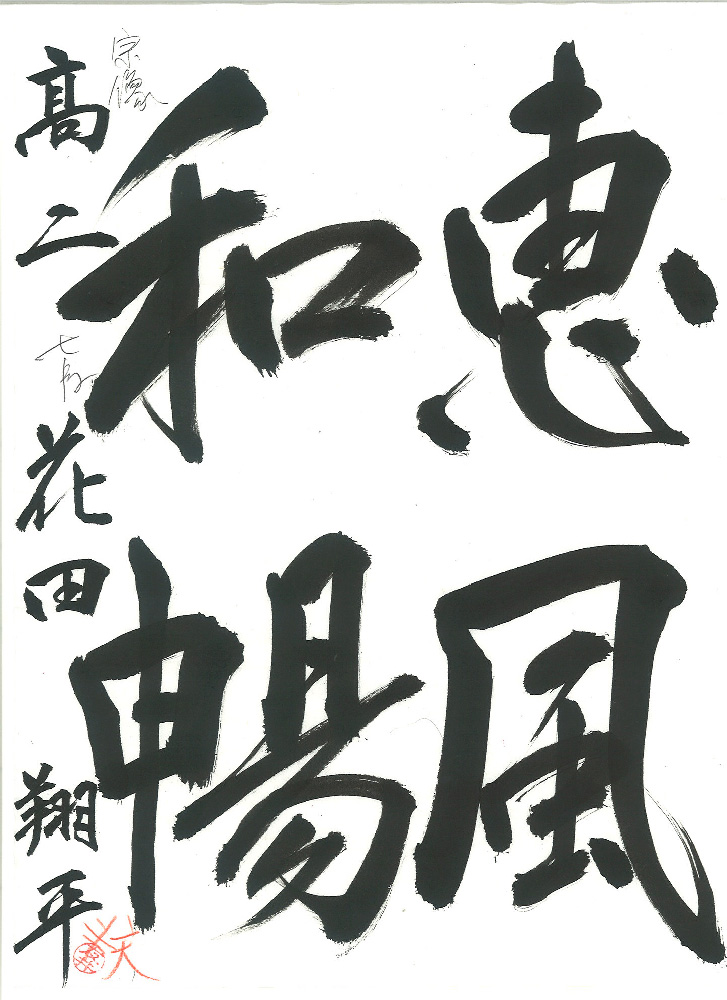 恵風
和暢
高二 花田翔平
宗像
天